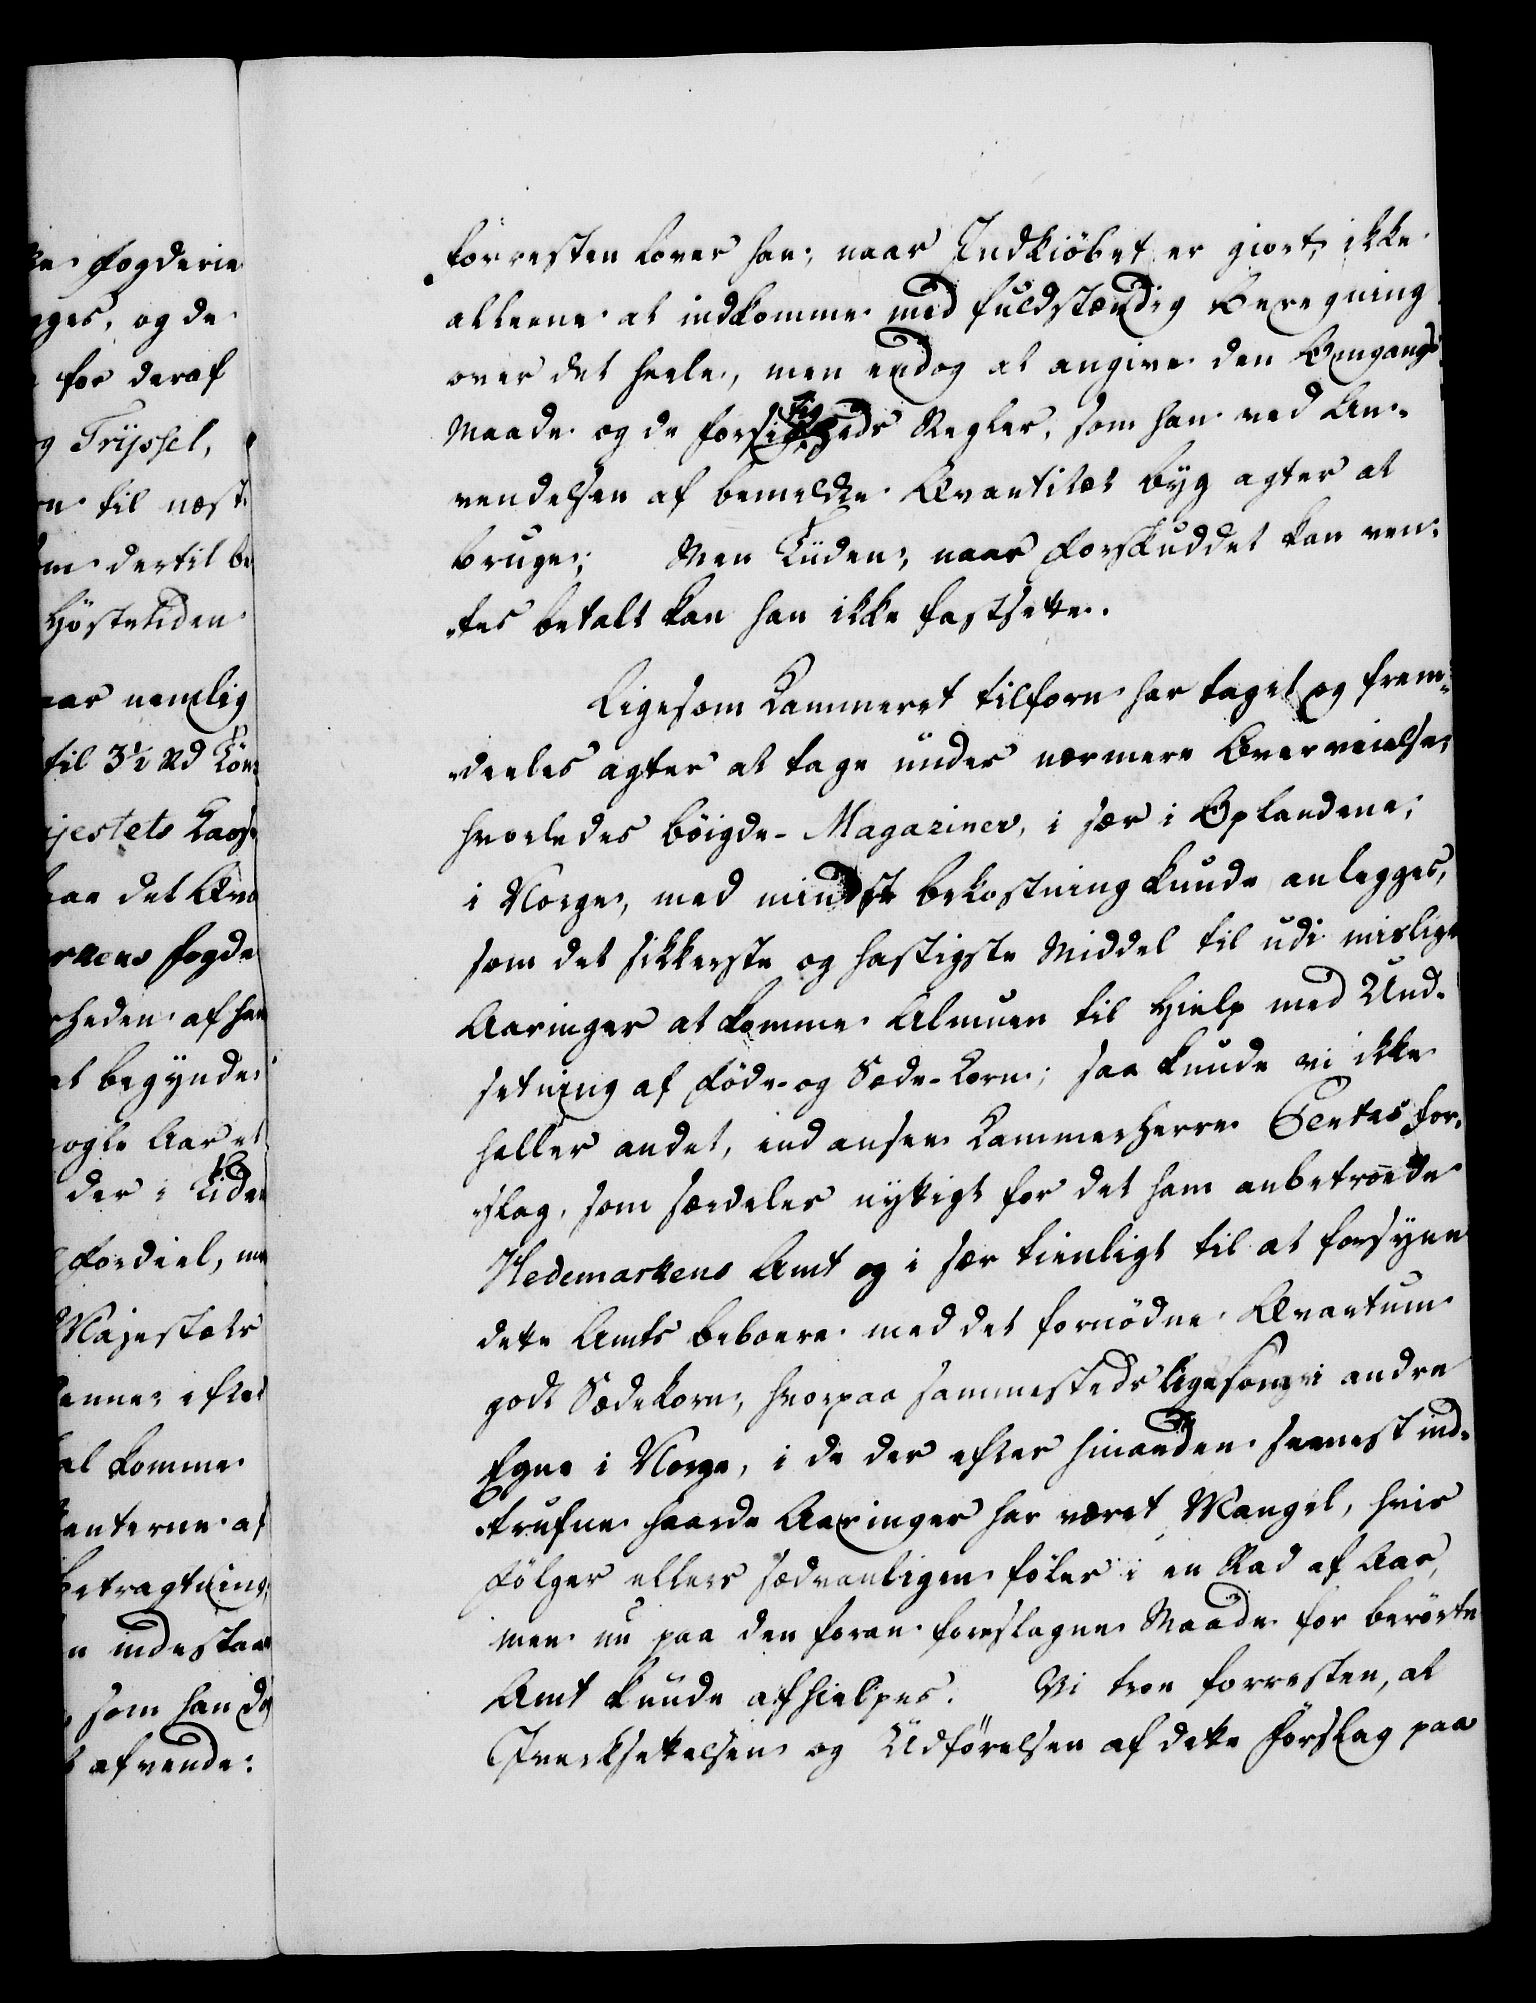 ke Fogderie
gges, og de
for deraf
g Trÿssel,
n til næst
dertil be
Høstetiden
aar nemlig
til 3½ Rd
jestets Cass
paa det Qva
rkens Fogde
heden af han
at begynde
ogle Aar et
der i Tide
Fordeel, me
Majestæts
efter
al komme
enterne af
betragtning
n indestaa
som han d
afvende:
forresten lover han, naar Indkiöbet er giort, ikke
alleene at indkomme med fuldstændig Beregning
over det heele, men endog at angive den Omgangs
Maade og de Forsigtigheds Regler, som han ved An-
vendelsen af bemeldte Qvantitet Byg agter at
bruge; Men Tiiden, naar Forskuddet kan ven-
tes betalt kan han ikke fastsette.
Ligesom Cammeret tilforn har taget og frem-
deeles agter at tage under nærmere Overveielse
hvorledes Böigde-Magaziner, i sær i Oplandene,
i Norge, med mindst Bekostning kunde anlegges,
som det sikkerste og hastigste Middel til udi mislige
Aaringer at komme Almuen til Hielp med Und-
setning af Föde- og Sæde-Corn; saa kunde vi ikke
heller andet, end ansee Cammerherre Sentes For-
slag, som særdeles nyttigt for det ham anbetroede
Hedemarkens Amt og i sær tienligt til at forsyne
dette Amts Beboere med det fornödne Qvantum
godt Sædekorn, hvorpaa sammesteds ligesom i andre
Egne i Norge, i de der efter hinanden seenest ind-
trufne haarde Aaringer har været Mangel, hvis
Fölger ellers sædvanligen föles i en Rad af Aar,
men nu paa den foran foreslagne Maade for berörte
Amt kunde afhielpes. Vi troe forresten, at
Iverksettelsen og Udförelsen af dette Forslag paa